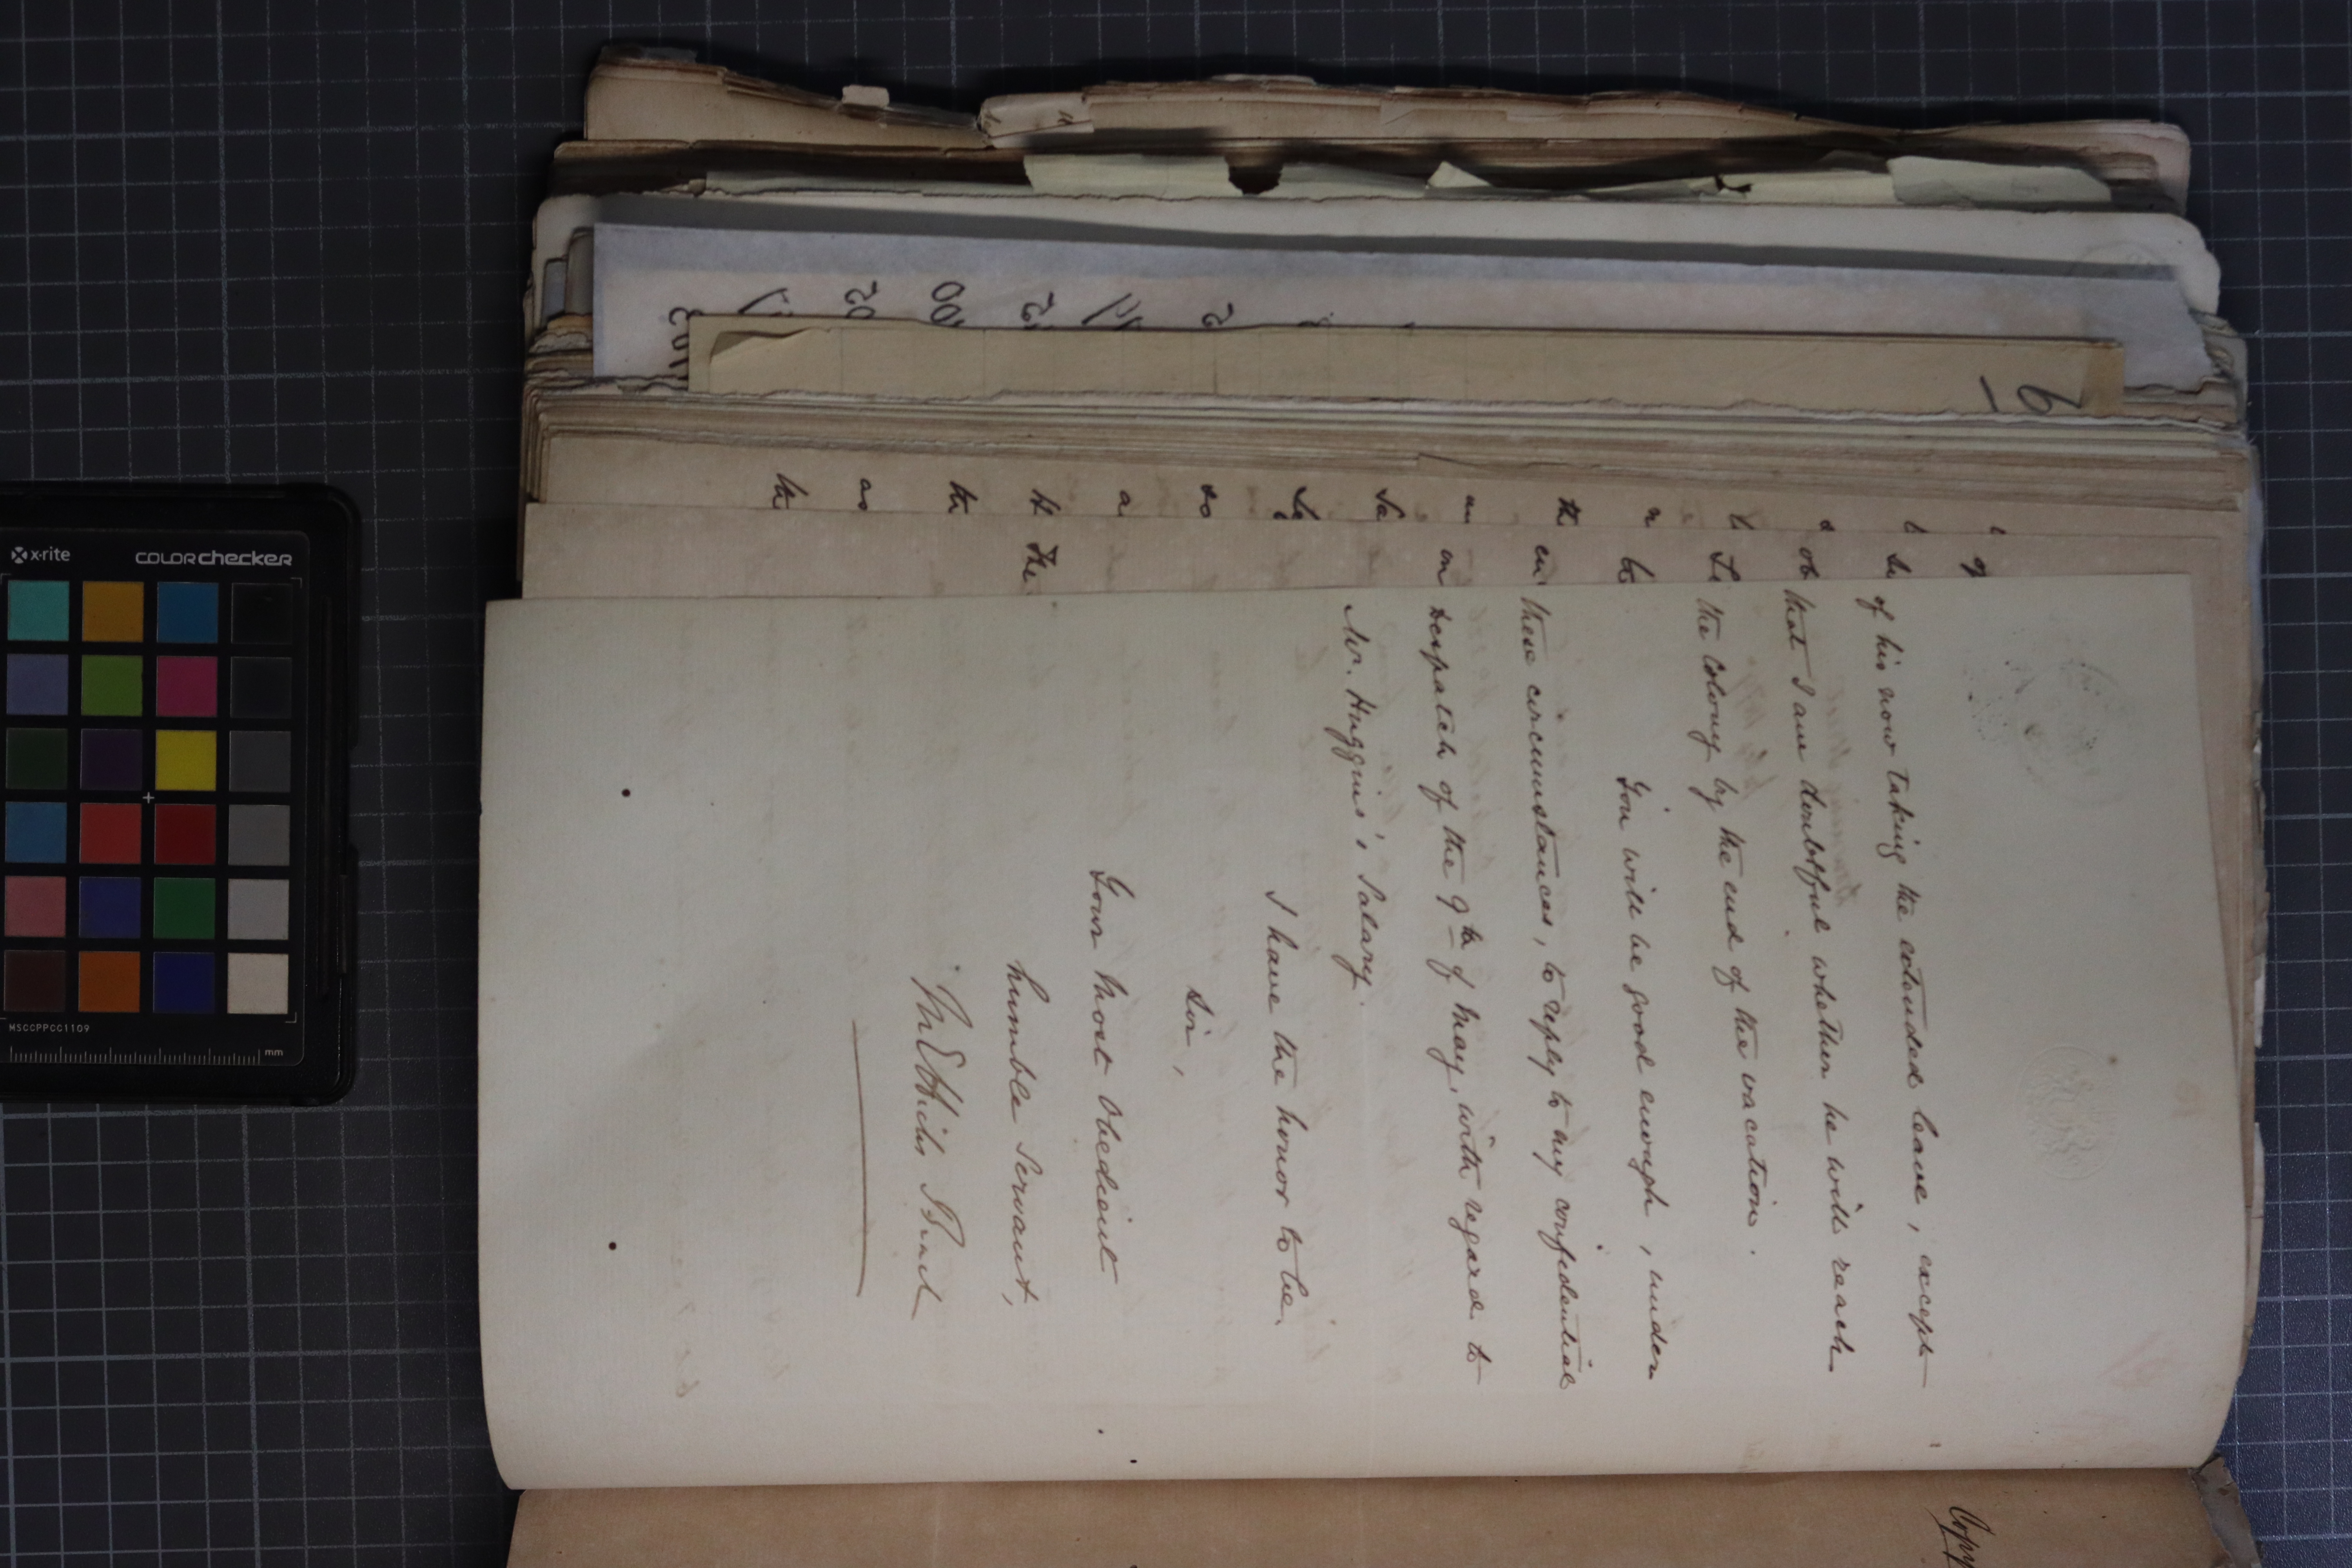 of his now taking the extended leave, except
that I am doubtful whether he will reach
the Colony by the end of the vacation.
You will be good enough, under
these circumstances, to reply to my confidential
Despatch of the 9th of May, with regard to
Mr. Huggins's Salary.
I have the honor to be
Sir,
Your most obedient
humble Servant,
The
in
an
th
as
th
a
so
Sa
th
of
6
Copy
x-rite
colorchecker
MSCCPPCC1109
mm